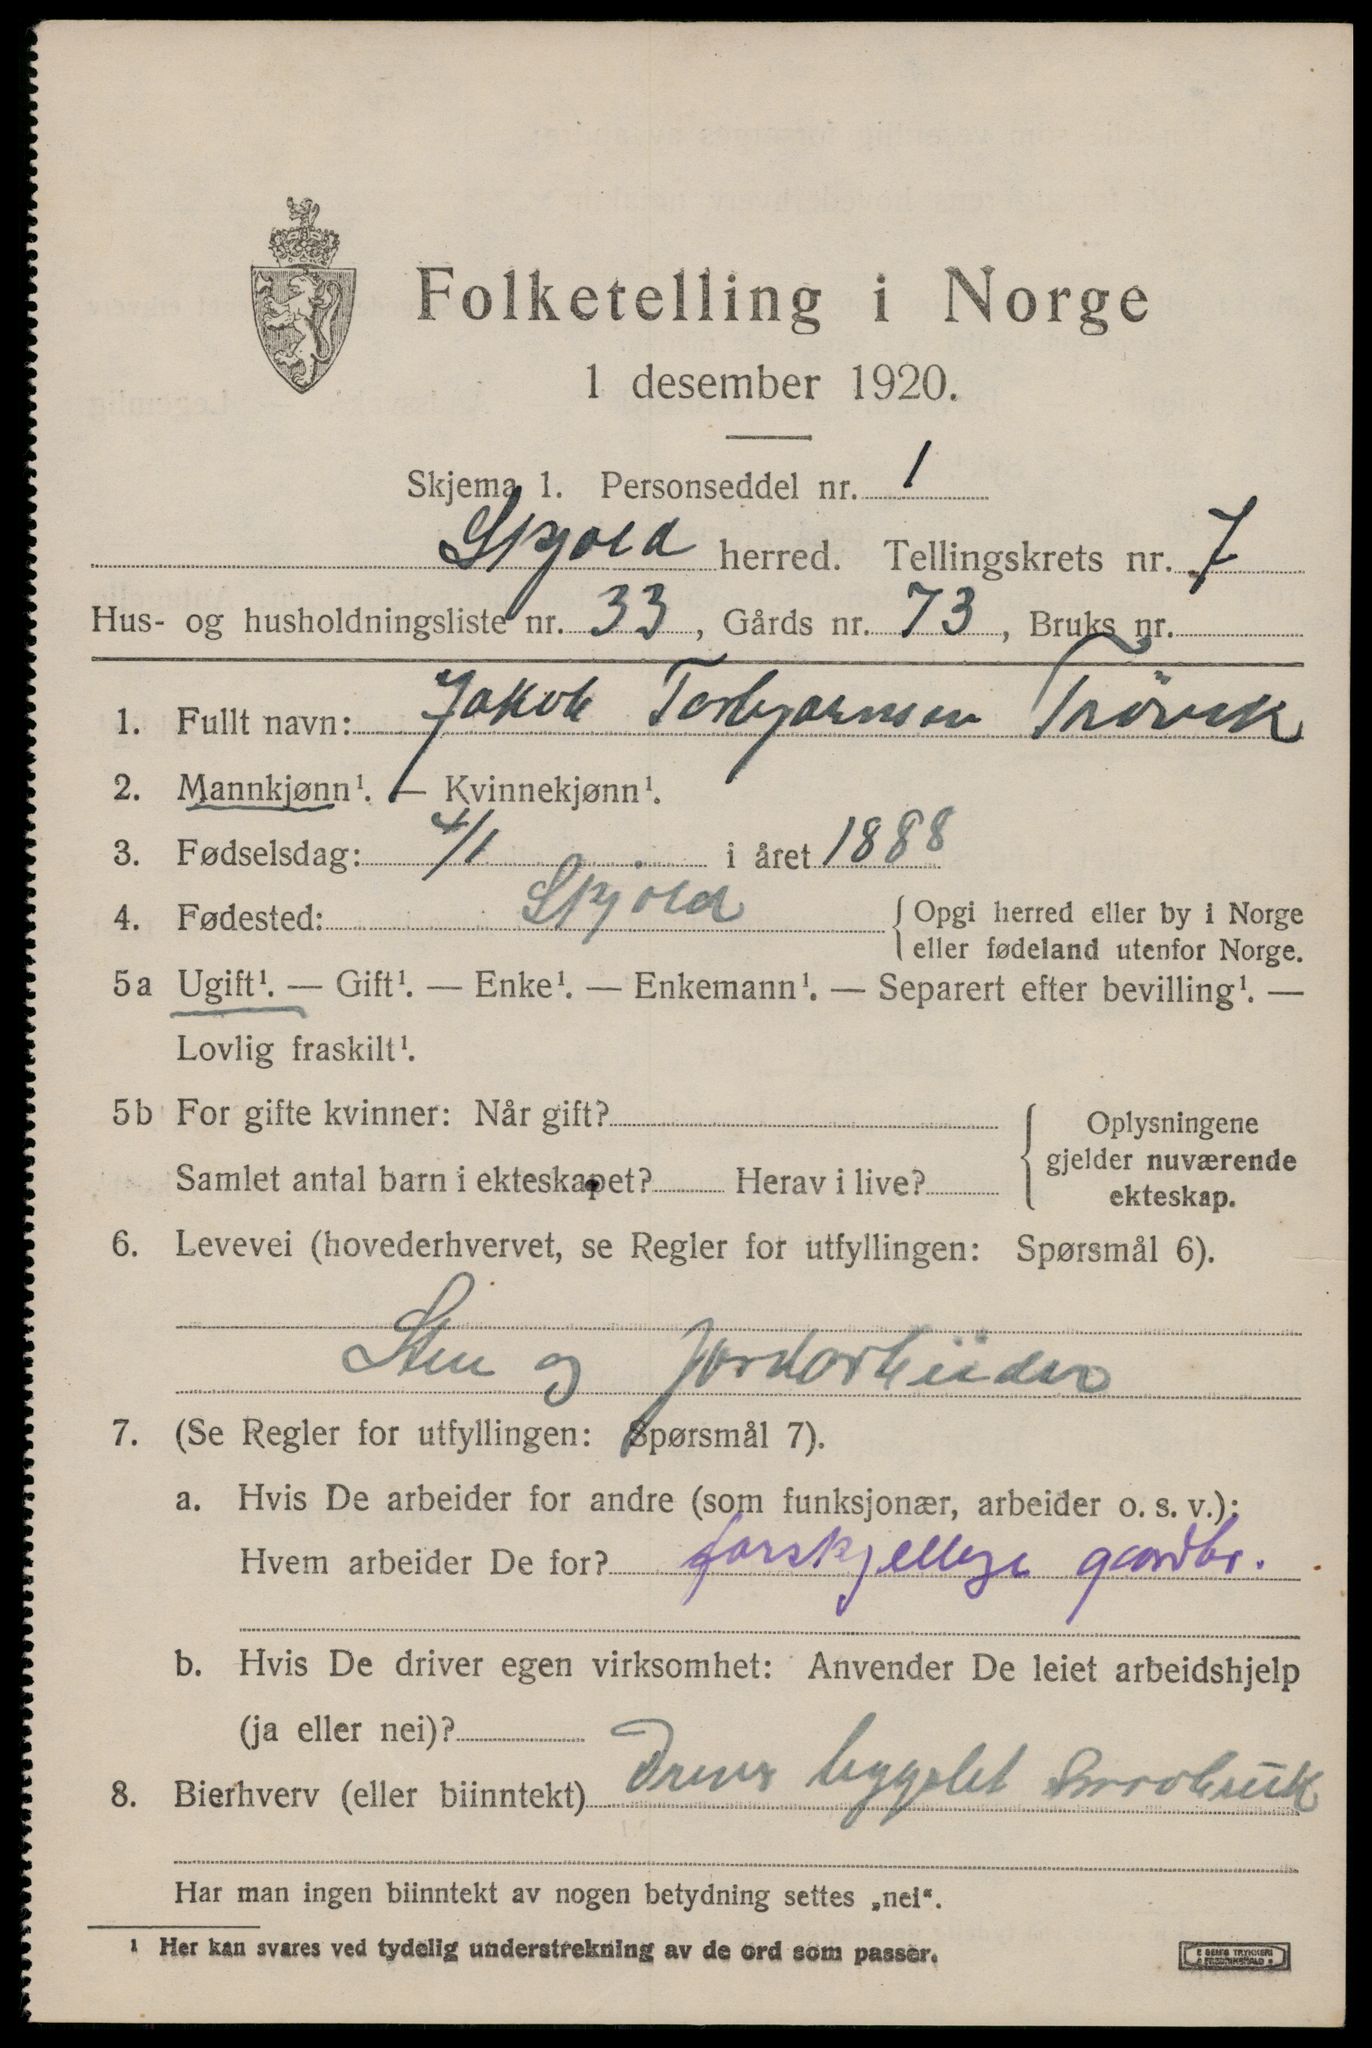 Folketelling i Norge
1 desember 1920.
Skjema 1. Personseddel nr. 1
Skjold herred. Tellingskrets nr. 7
Hus- og husholdningsliste nr. 33, Gårds nr. 73, Bruks nr.
1. Fullt navn: Jakob Torbjørnsen Trövik
2. Mannkjønn¹. — Kvinnekjønn¹.
3. Fødselsdag: 4/1 i året 1888
4. Fødested: Skjold { Opgi herred eller by i Norge
eller fødeland utenfor Norge.
5a Ugift¹. — Gift¹. — Enke¹. — Enkemann¹. — Separert efter bevilling¹. —
Lovlig fraskilt¹.
5b For gifte kvinner: Når gift?
Samlet antal barn i ekteskapet? Herav i live?
{ Oplysningene
gjelder nuværende
ekteskap.
6. Levevei (hovederhvervet, se Regler for utfyllingen: Spørsmål 6).
Sten og Jordarbeider
7. (Se Regler for utfyllingen: Spørsmål 7).
a. Hvis De arbeider for andre (som funksjonær, arbeider o. s. v.):
Hvem arbeider De for? forskjellige gardbr.
b. Hvis De driver egen virksomhet: Anvender De leiet arbeidshjelp
(ja eller nei)?
8. Bierhverv (eller biinntekt) bygslet Småbruk
Har man ingen biinntekt av nogen betydning settes „nei“.
¹ Her kan svares ved tydelig understrekning av de ord som passer.